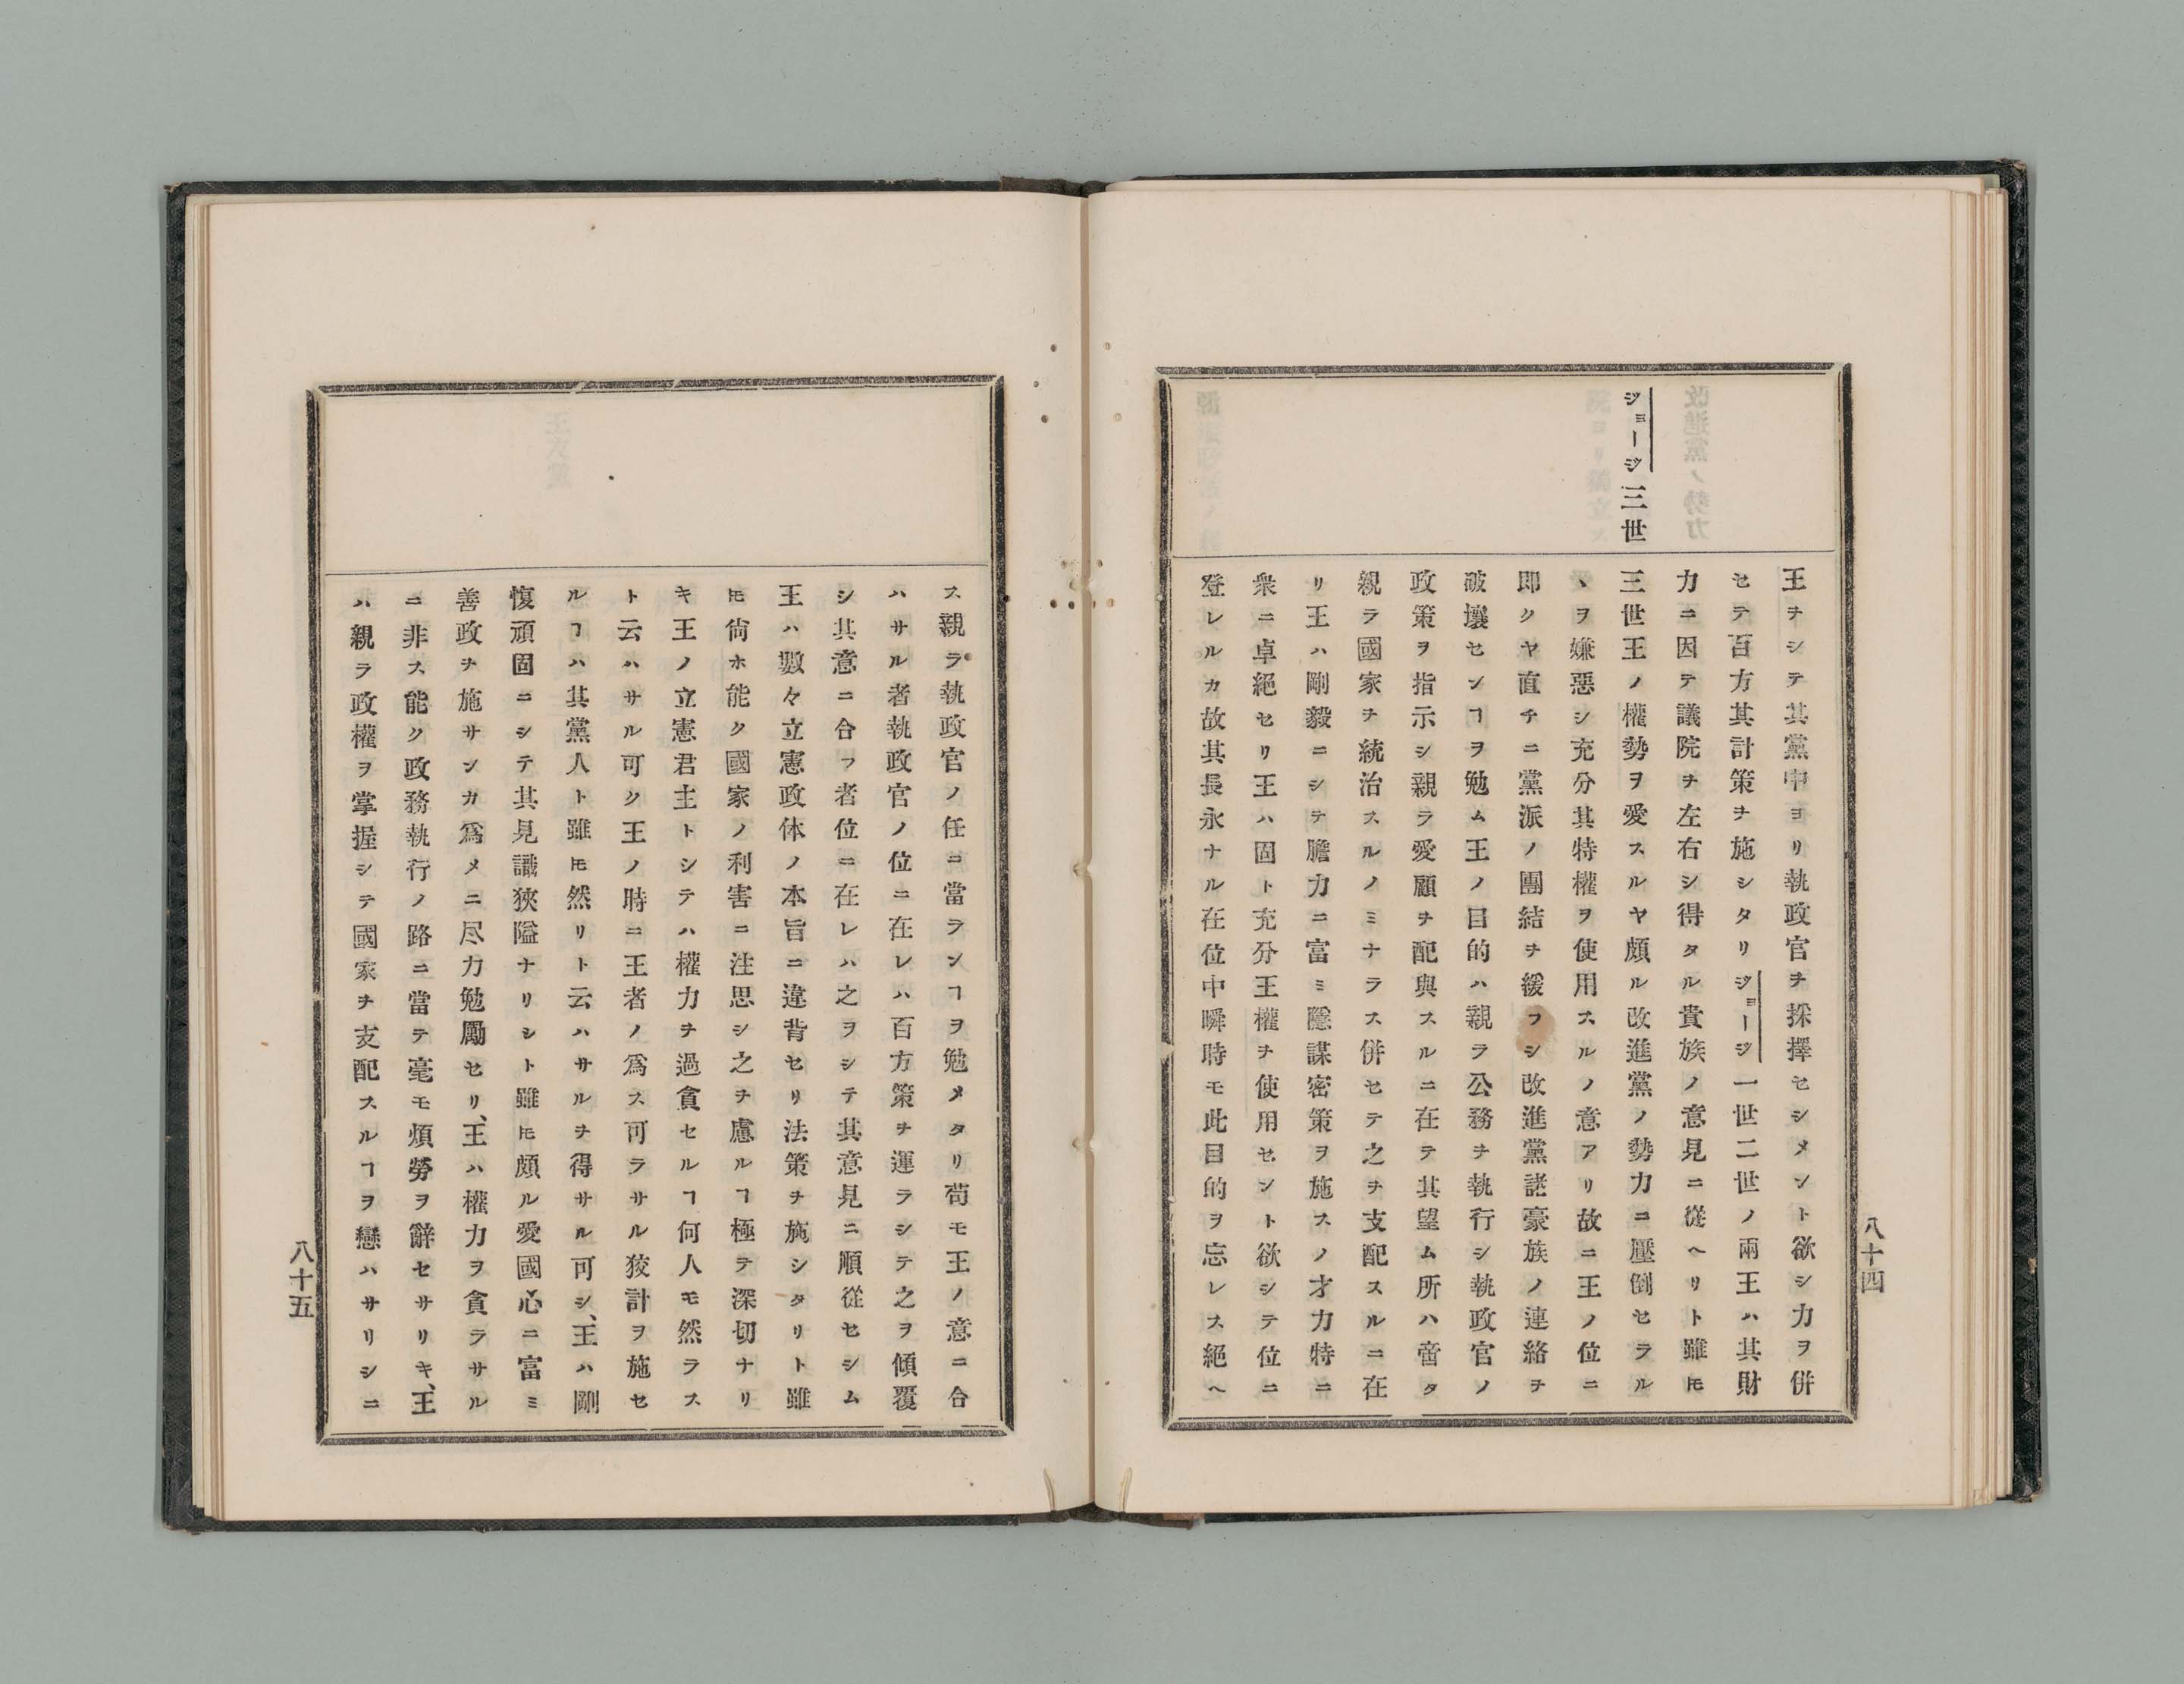 ジョージ三世
王ヲシテ其黨中ヨリ執政官ヲ採擇セシメント欲シ力ヲ併
セテ百方其計策ヲ施シタリジョージ一世二世ノ兩王ハ其財
力ニ因テ議院ヲ左右シ得タル貴族ノ意見ニ從ヘリト雖𪜈
三世王ノ權勢ヲ愛スルヤ頗ル改進黨ノ勢力ニ壓倒セラル
ヽヲ嫌惡シ充分其特權ヲ使用スルノ意アリ故ニ王ノ位ニ
即クヤ直チニ黨派ノ團結ヲ緩フシ改進黨諸豪族ノ連絡ヲ
破壞センヿヲ勉ム王ノ目的ハ親ラ公務ヲ執行シ執政官ノ
政策ヲ指示シ親ラ愛顧ヲ配與スルニ在テ其望ム所ハ啻タ
親ラ國家ヲ統治スルノミナラス併セテ之ヲ支配スルニ在
リ王ハ剛毅ニシテ膽力ニ富ミ隱謀密策ヲ施スノ才力特ニ
衆ニ卓絕セリ王ハ固ト充分王權ヲ使用セント欲シテ位ニ
登レルカ故其長永ナル在位中瞬時モ此目的ヲ忘レス絕ヘ
八十四
ス親ラ執政官ノ任ニ當ランヿヲ勉メタリ苟モ王ノ意ニ合
ハサル者執政官ノ位ニ在レハ百方策ヲ運ラシテ之ヲ傾覆
シ其意ニ合フ者位ニ在レハ之ヲシテ其意見ニ順從セシム
王ハ數々立憲政体ノ本旨ニ違背セリ法策ヲ施シタリト雖
𪜈尙ホ能ク國家ノ利害ニ注思シ之ヲ慮ルヿ極テ深切ナリ
キ王ノ立憲君主トシテハ權力ヲ過貪セルヿ何人モ然ラス
ト云ハサル可ク王ノ時ニ王者ノ爲ス可ラサル狡計ヲ施セ
ルヿハ其黨人ト雖𪜈然リト云ハサルヲ得サル可シ、王ハ剛
愎頑固ニシテ其見識狹隘ナリシト雖𪜈頗ル愛國心ニ富ミ
善政ヲ施サンカ爲メニ尽力勉勵セリ、王ハ權力ヲ貪ラサル
ニ非ス能ク政務執行ノ路ニ當テ毫モ煩勞ヲ辭セサリキ、王
ハ親ラ政權ヲ掌握シテ國家ヲ支配スルヿヲ戀ハサリシニ
八十五